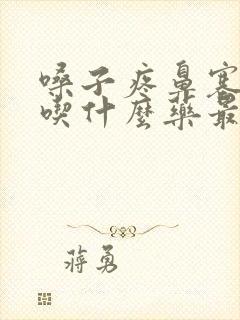 嗓子疼鼻塞
喫什麼藥最
蔣勇